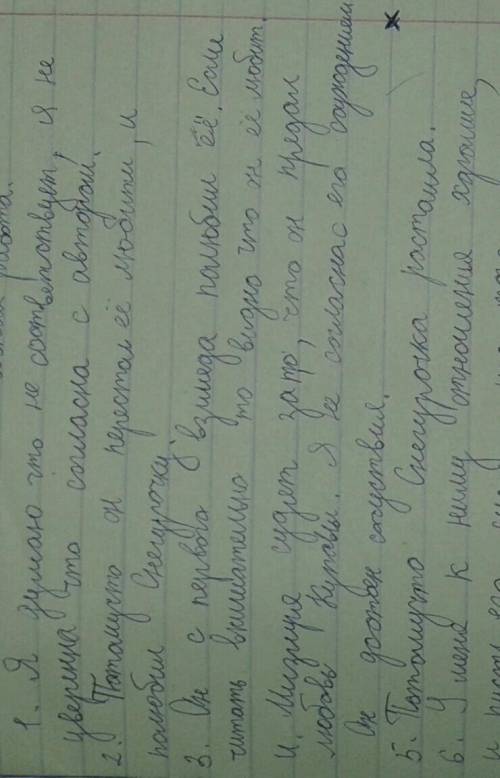 работа.
1. Я думаю что не соответствует, я не
уверина что согласна с автором.
2. Потомучто он перестал её любити, и
полюбил Снегурочку.
3. Он с первова взгляда полюбил её. Если
читать внимательно то видно что он её любит.
4. Мизгиря судят за то, что он предал
любовь Купавы. Я не согласнас его осуждением
Он достоен сочуствия.
5. Потомучто Снегурочка ростаила.
6. У меня к нему отношения хорошие,